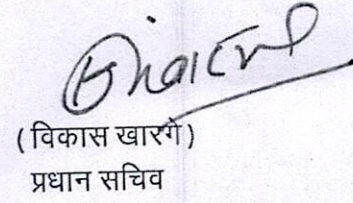 (विकास खारगे)
प्रधान सचिव